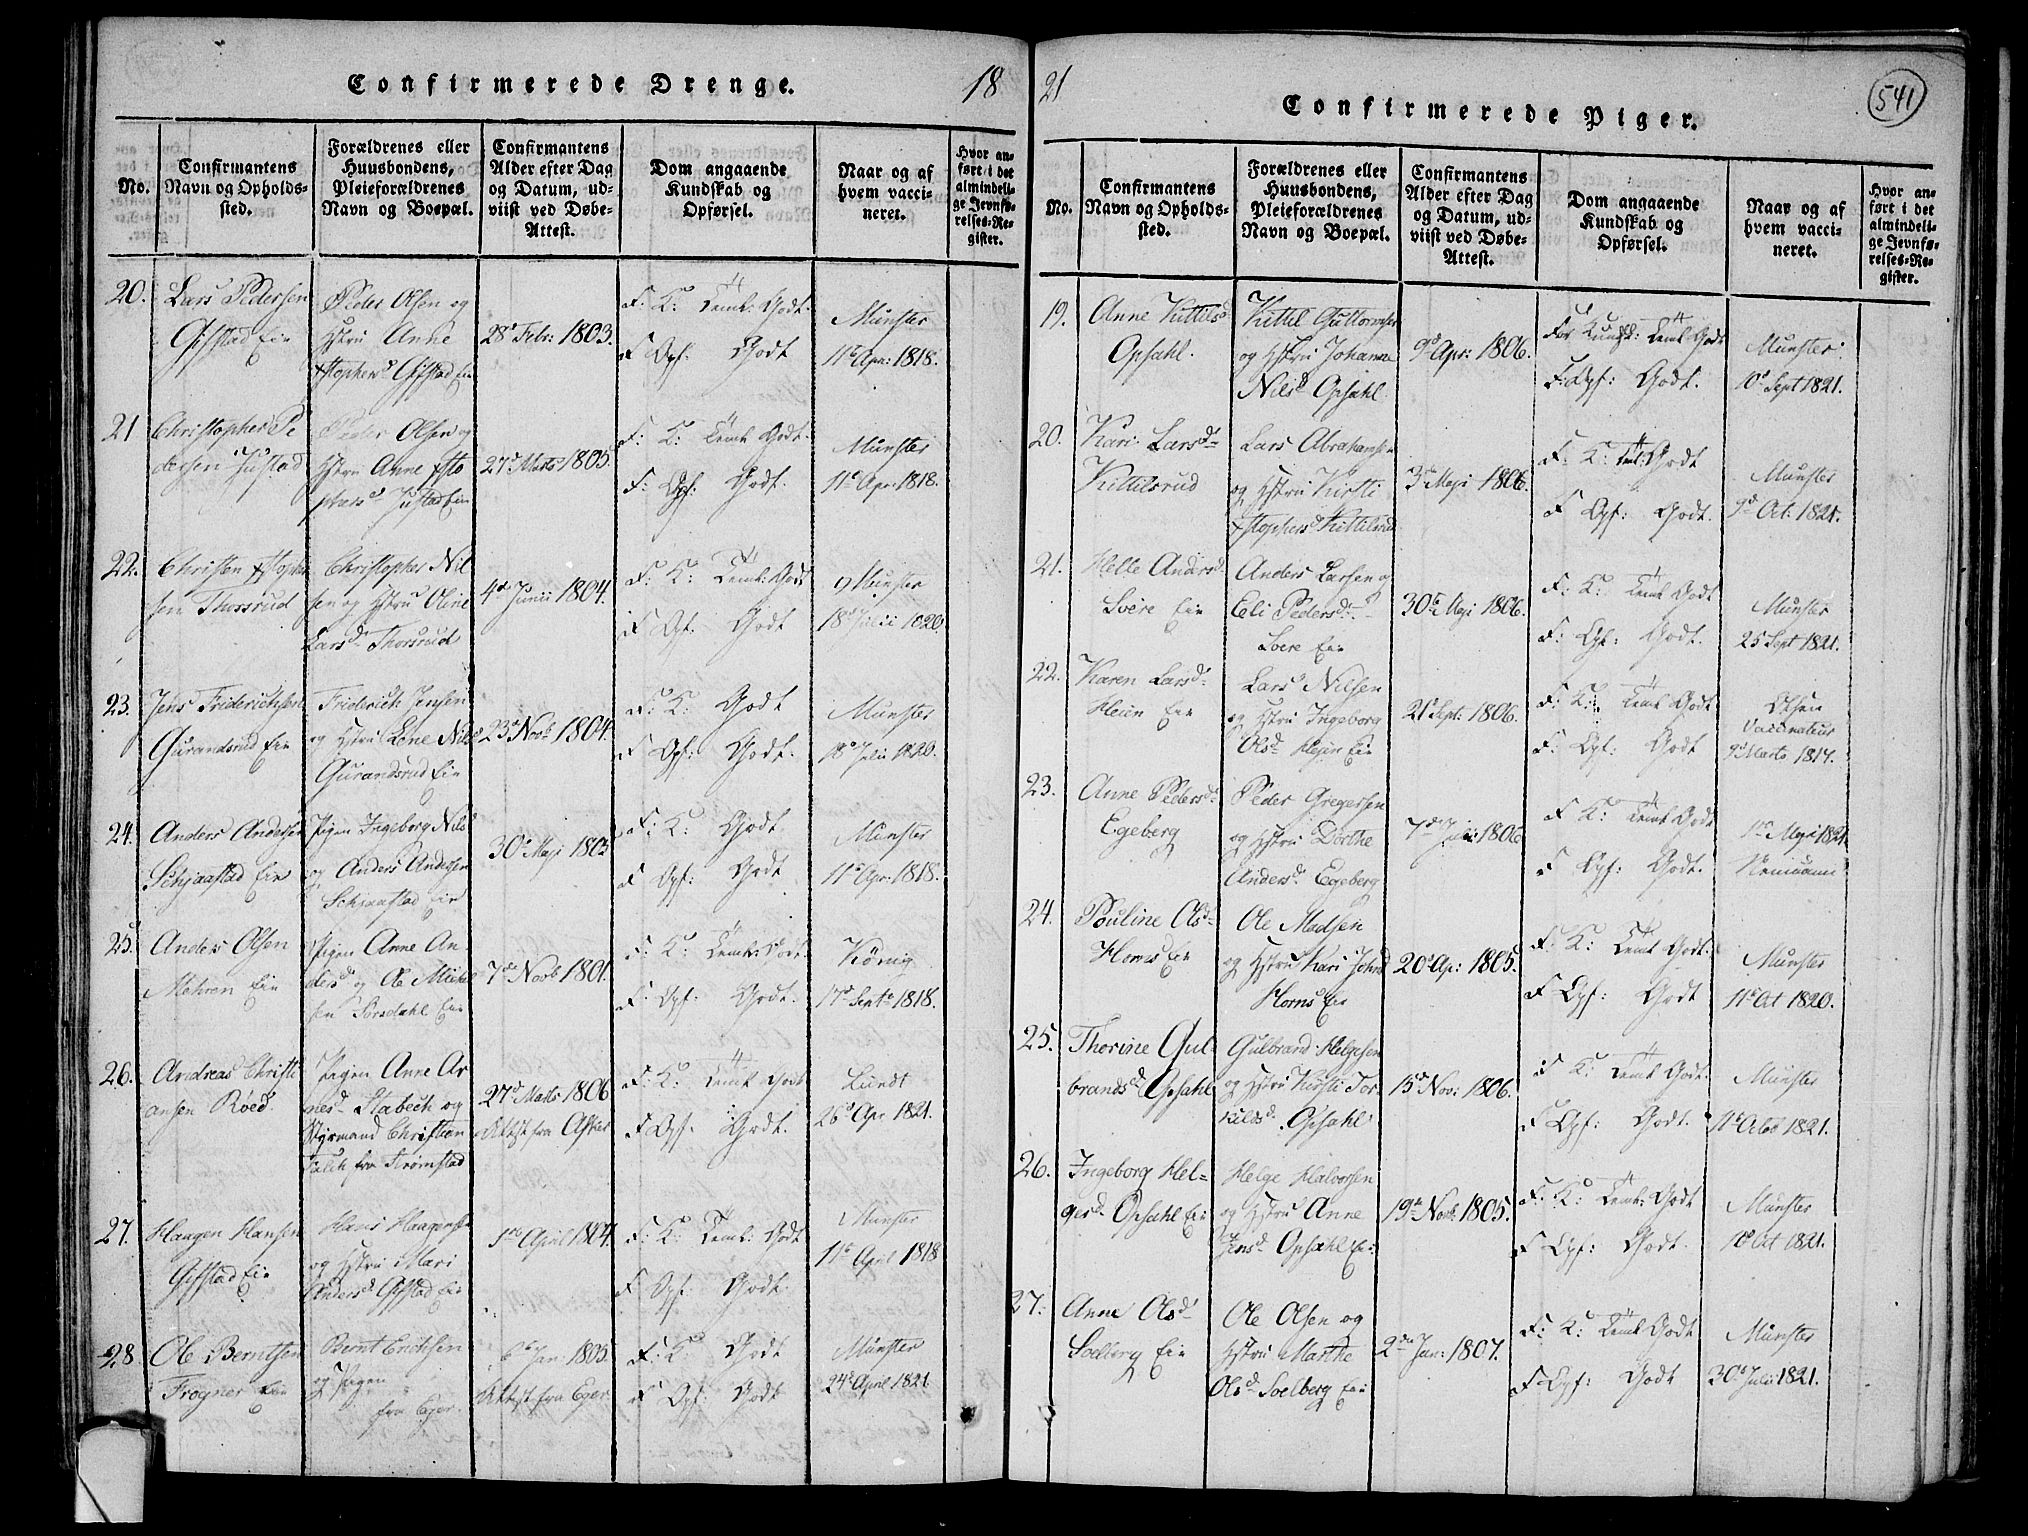 Confirmerede Drenge.
18
No.
Confirmantens
Navn og Opholds-
sted.
Forældrenes eller
Huusbondens,
Pleieforældrenes
Navn og Boepæl.
Confirmantens
Alder efter Dag
og Datum, ud-
viist ved Døbe-
Attest.
Dom angaaende
Kundskab og
Opførsel.
Naar og af
hvem vacci-
neret.
Hvor an-
ført i det
almindeli-
ge Jevnfø-
relses-Re-
gister.
20.
Lars Pedersen
Gifstad Eie
Peder Olsen og
Hstru Anne
Xstophersd Gifstad Eie
28d Febr: 1803.
F. K: Teml: Godt.
F Opf: Godt
Munster
11te Apr: 1818.
21
Christopher Pe
dersen Justad
Peder Olsen og
Hstru Anne Xsto
phersd Justad Eie
27d Marts 1805
F: K: Teml Godt.
F: Opf: Godt.
Munster
11te Apr 1818.
22.
Christen Xstopher
sen Thorsrud
Christopher Nil
sen og Hstru Oline
Larsd Thorsrud
4de Junii 1804.
F: K: Teml: Godt
F Opf: Godt
Munster
18d Julii 1820.
23.
Jens Friderichsen
Gurandsrud Eie
Friderich Jensen
og Hstru Lene Nilsd
Gurandsrud Eie
23d Novb 1804.
F: K: Godt
F Opf: Godt.
Munster
18d Julii 1820.
24.
Anders Andersen
Schjaastad Eie
Pigen Ingeborg Nilsd
og Anders Andersen
Schjaastad Eie
30d Maji 1803
F: K: Godt
F Opf: Godt
Munster
11te Apr: 1818.
25.
Anders Olsen
Mehren Eie
Pigen Anne An
dersd og Ole Mickel
sen Sørsdahl Eie
7de Novb 1801.
F: K: Teml: Godt.
F: Opf: Godt.
König
17d Septr 1818.
26.
Andreas Christi
ansen Röed.
Pigen Anne Ar
nesd Stabech og
Styrmand Christian
Falch fra Strømstad
27d Marts 1806
Attest fra Asker
F: K: Teml Godt
F Opf: Godt.
Lundt
26d Apr 1821.
27.
Haagen Hansen
Gifstad Eie
Hans Haagensen
og Hstru Mari
Andersd Gifstad Eie
1ste April 1804.
F: K: Teml: Godt
F: Opf: Godt.
Munster
11te April 1818
28
Ole Berntsen
Frogner Eie
Bernt Erichsen
og Pigen
fra Eger.
6te Jan: 1805.
Attest fra Eger
F: K: Godt
F Opf: Godt
Munster
24d April 1821
21
Confirmerede Piger.
541
No.
Confirmantens
Navn og Opholds-
sted.
Forældrenes eller
Huusbondens,
Pleieforældrenes
Navn og Boepæl.
Confirmantens
Alder efter Dag
og Datum, ud-
viist ved Døbe-
Attest.
Dom angaaende
Kundskab og
Opførsel.
Naar og af
hvem vacci-
neret.
Hvor an-
ført i det
almindeli-
ge Jevnfø-
relses-Re-
gister.
19.
Anne Kittilsd
Opsahl.
Kittil Guttormsen
og Hstru Johanne
Nilsd Opsahl
9d Apr: 1806.
For Kundsk: Teml Godt
F: Opf: Godt.
Munster
10d Sept 1821.
20.
Kari Larsd
Kittilsrud
Lars Abrahamsen
og Hstru Kirsti
Xstophersd Kittilsrud
3d Maji 1806.
F: K: Teml: Godt
F Opf: Godt.
Munster
9d Oct: 1821.
21.
Helle Andersd
Soere Eie
Anders Larsen og
Eli Pedersd
Soere Eie
30te Maji 1806.
F: K: Teml Godt
F: Opf: Godt.
Munster
25 Sept 1821.
22.
Karen Larsd
Heien Eie
Lars Nilsen
og Hstru Ingeborg
Olsd Hejen Eie
21d Sept: 1806.
F: K: Teml Godt
F: Opf: Godt
Olsen
Vaccinateur
9d Marts 1814.
23.
Anne Pedersd
Egeberg
Peder Gregersen
og Hstru Dorthe
Andersd Egeberg
7de Julii 1806
F K: Teml Godt
F Opf: Godt.
1ste Maji 1821
24.
Pouline Olsd
Horns Eie
Ole Madsen
og Hstru Kari Johnsd
Horns Eie
20d Ap: 1805.
F. K: Teml Godt.
F Opf: Godt
Munster
11te Oct 1820.
25.
Thorine Gul
brandsd Opsahl
Gulbrand Helgesen
og Hstru Kirsti Tor
kildsd Opsahl
15d Nov: 1806.
F K: Teml Godt.
F Opf: Godt.
Munster
11te Octob 1821.
26.
Ingeborg Hel-
gesd Opsahl Eie
Helge Halvorsen
og Hstru Anne
Jensd Opsahl Eie
19de Novb: 1805.
F: K: Teml: Godt
F Opf: Godt.
Munster
10d Oct 1821.
27:
Anne Olsd
Soelberg Eie
Ole Olsen og
Hstru Marthe
Olsd Soelberg Eie
2den Jan: 1807.
F: K: Teml Godt
F Opf: Godt
Munster
30d Juli 1821.